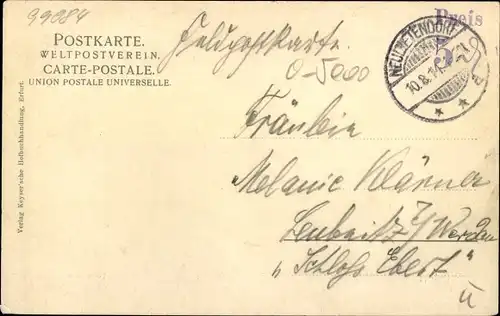 99084
Preis
POSTKARTE.
WELTPOSTVEREIN.
CARTE-POSTALE.
UNION POSTALE UNIVERSELLE.
Feldpostkarte.
NEUDIETENDORF
10.8.14
0-5000
Fräulein
Melanie Klärner
Leubnitz b/Werdau
„Schloss Ebert"
Verlag Keyser'sche Hofbuchhandlung, Erfurt.